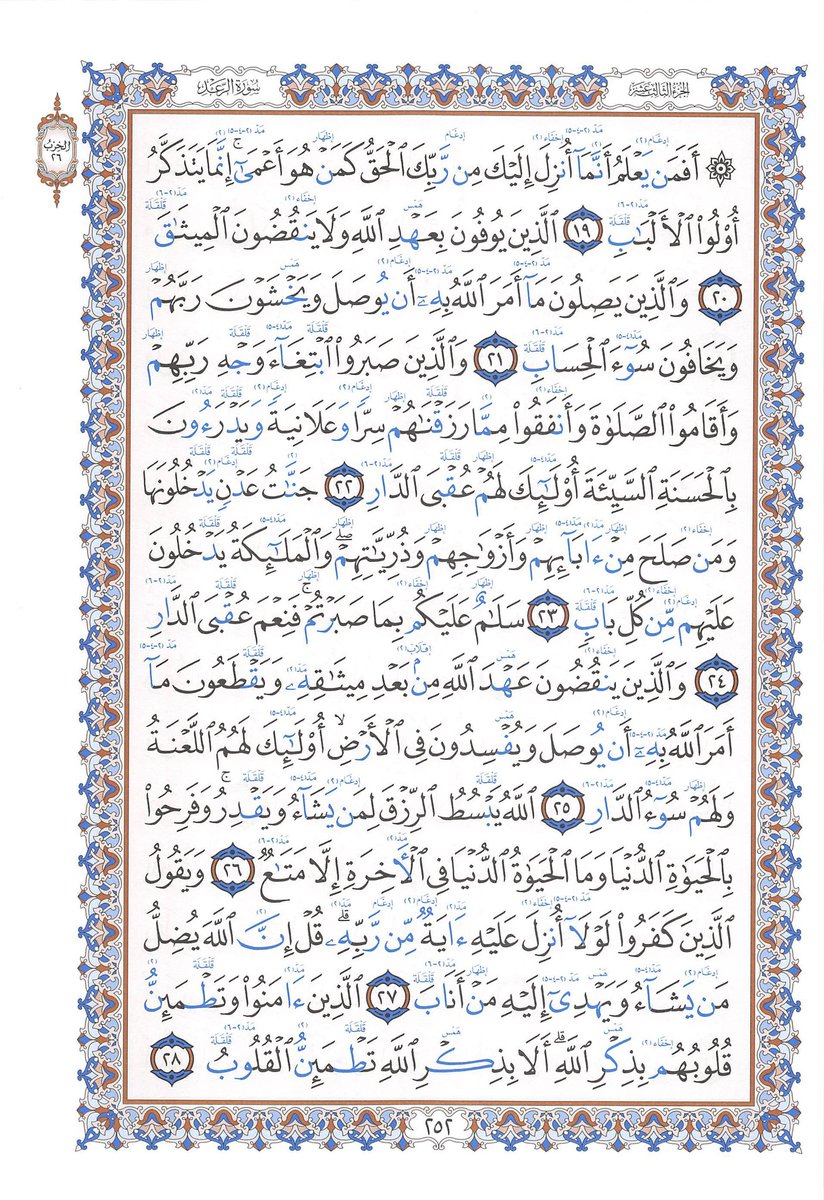 الجزء الثالث عشر
سُورَةُ الرَّعْدِ
الحِزْبُ
٢٦
۞ أَفَمَن يَعْلَمُ أَنَّمَآ أُنزِلَ إِلَيْكَ مِن رَّبِّكَ ٱلْحَقُّ كَمَنْ هُوَ أَعْمَىٰٓ ۚ إِنَّمَا يَتَذَكَّرُ
أُو۟لُوا۟ ٱلْأَلْبَـٰبِ ١٩ ٱلَّذِينَ يُوفُونَ بِعَهْدِ ٱللَّهِ وَلَا يَنقُضُونَ ٱلْمِيثَـٰقَ
٢٠ وَٱلَّذِينَ يَصِلُونَ مَآ أَمَرَ ٱللَّهُ بِهِۦٓ أَن يُوصَلَ وَيَخْشَوْنَ رَبَّهُمْ
وَيَخَافُونَ سُوٓءَ ٱلْحِسَابِ ٢١ وَٱلَّذِينَ صَبَرُوا۟ ٱبْتِغَآءَ وَجْهِ رَبِّهِمْ
وَأَقَامُوا۟ ٱلصَّلَوٰةَ وَأَنفَقُوا۟ مِمَّا رَزَقْنَـٰهُمْ سِرًّا وَعَلَانِيَةً وَيَدْرَءُونَ
بِٱلْحَسَنَةِ ٱلسَّيِّئَةَ أُو۟لَـٰٓئِكَ لَهُمْ عُقْبَى ٱلدَّارِ ٢٢ جَنَّـٰتُ عَدْنٍ يَدْخُلُونَهَا
وَمَن صَلَحَ مِنْ ءَابَآئِهِمْ وَأَزْوَٰجِهِمْ وَذُرِّيَّـٰتِهِمْ ۖ وَٱلْمَلَـٰٓئِكَةُ يَدْخُلُونَ
عَلَيْهِم مِّن كُلِّ بَابٍ ٢٣ سَلَـٰمٌ عَلَيْكُم بِمَا صَبَرْتُمْ ۚ فَنِعْمَ عُقْبَى ٱلدَّارِ
٢٤ وَٱلَّذِينَ يَنقُضُونَ عَهْدَ ٱللَّهِ مِنۢ بَعْدِ مِيثَـٰقِهِۦ وَيَقْطَعُونَ مَآ
أَمَرَ ٱللَّهُ بِهِۦٓ أَن يُوصَلَ وَيُفْسِدُونَ فِى ٱلْأَرْضِ ۙ أُو۟لَـٰٓئِكَ لَهُمُ ٱللَّعْنَةُ
وَلَهُمْ سُوٓءُ ٱلدَّارِ ٢٥ ٱللَّهُ يَبْسُطُ ٱلرِّزْقَ لِمَن يَشَآءُ وَيَقْدِرُ ۚ وَفَرِحُوا۟
بِٱلْحَيَوٰةِ ٱلدُّنْيَا وَمَا ٱلْحَيَوٰةُ ٱلدُّنْيَا فِى ٱلْـَٔاخِرَةِ إِلَّا مَتَـٰعٌ ٢٦ وَيَقُولُ
ٱلَّذِينَ كَفَرُوا۟ لَوْلَآ أُنزِلَ عَلَيْهِ ءَايَةٌ مِّن رَّبِّهِۦ ۗ قُلْ إِنَّ ٱللَّهَ يُضِلُّ
مَن يَشَآءُ وَيَهْدِىٓ إِلَيْهِ مَنْ أَنَابَ ٢٧ ٱلَّذِينَ ءَامَنُوا۟ وَتَطْمَئِنُّ
قُلُوبُهُم بِذِكْرِ ٱللَّهِ ۗ أَلَا بِذِكْرِ ٱللَّهِ تَطْمَئِنُّ ٱلْقُلُوبُ ٢٨
٢٥٢